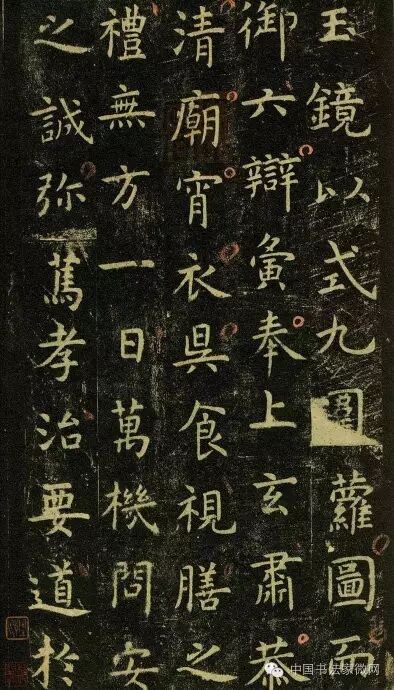 玉鏡以式九圍蘿圖而
御六辯寅奉上玄肅恭
清廟宵衣昃食視膳之
禮無方一日萬機問安
之誠弥篤孝治要道於
中国书法家微网